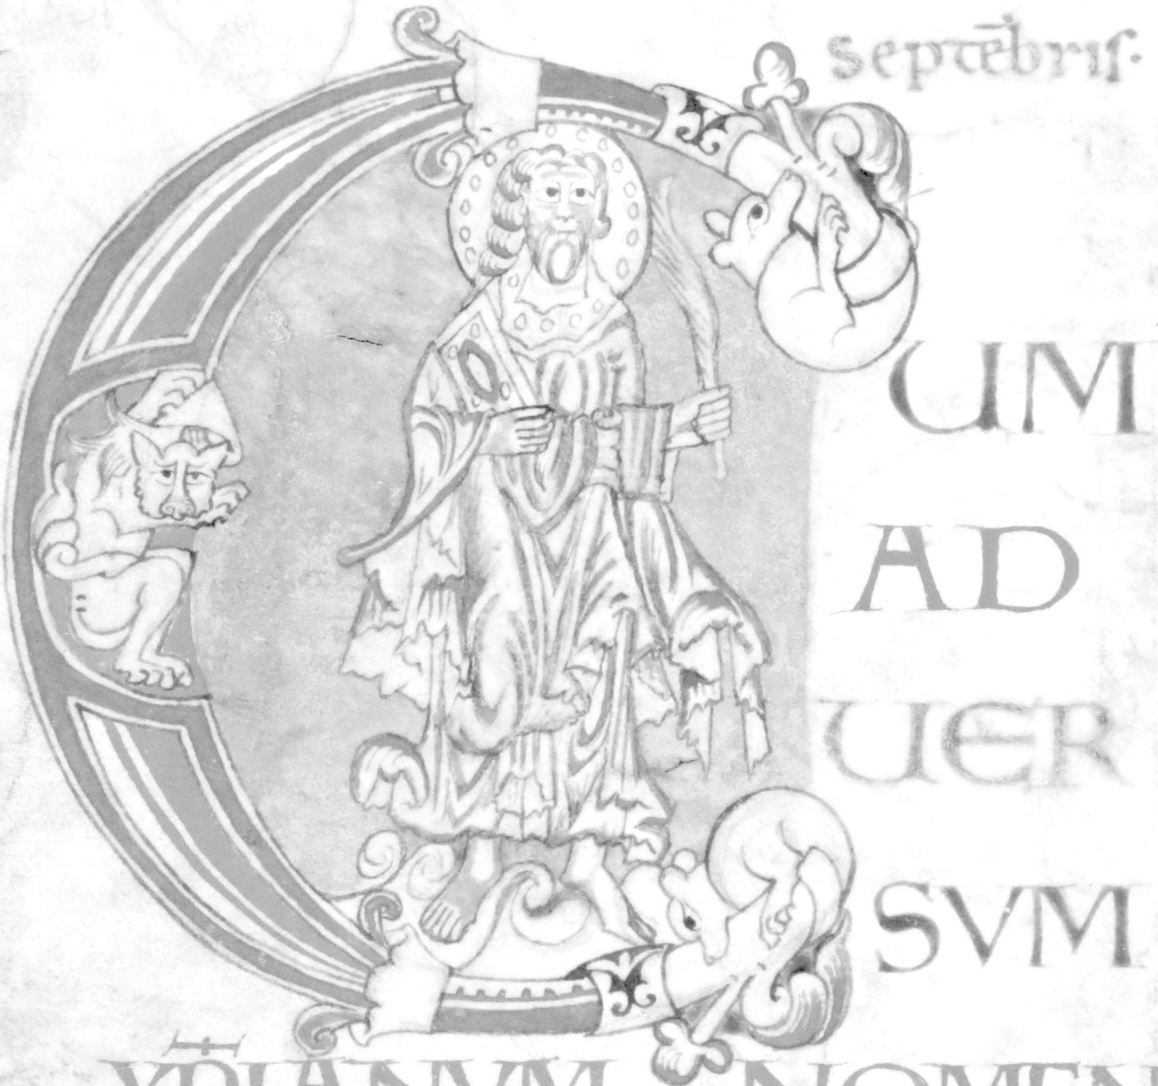 Septēbris·
CUM
AD
UER
SVM
YP̄RIANVM NOMEN